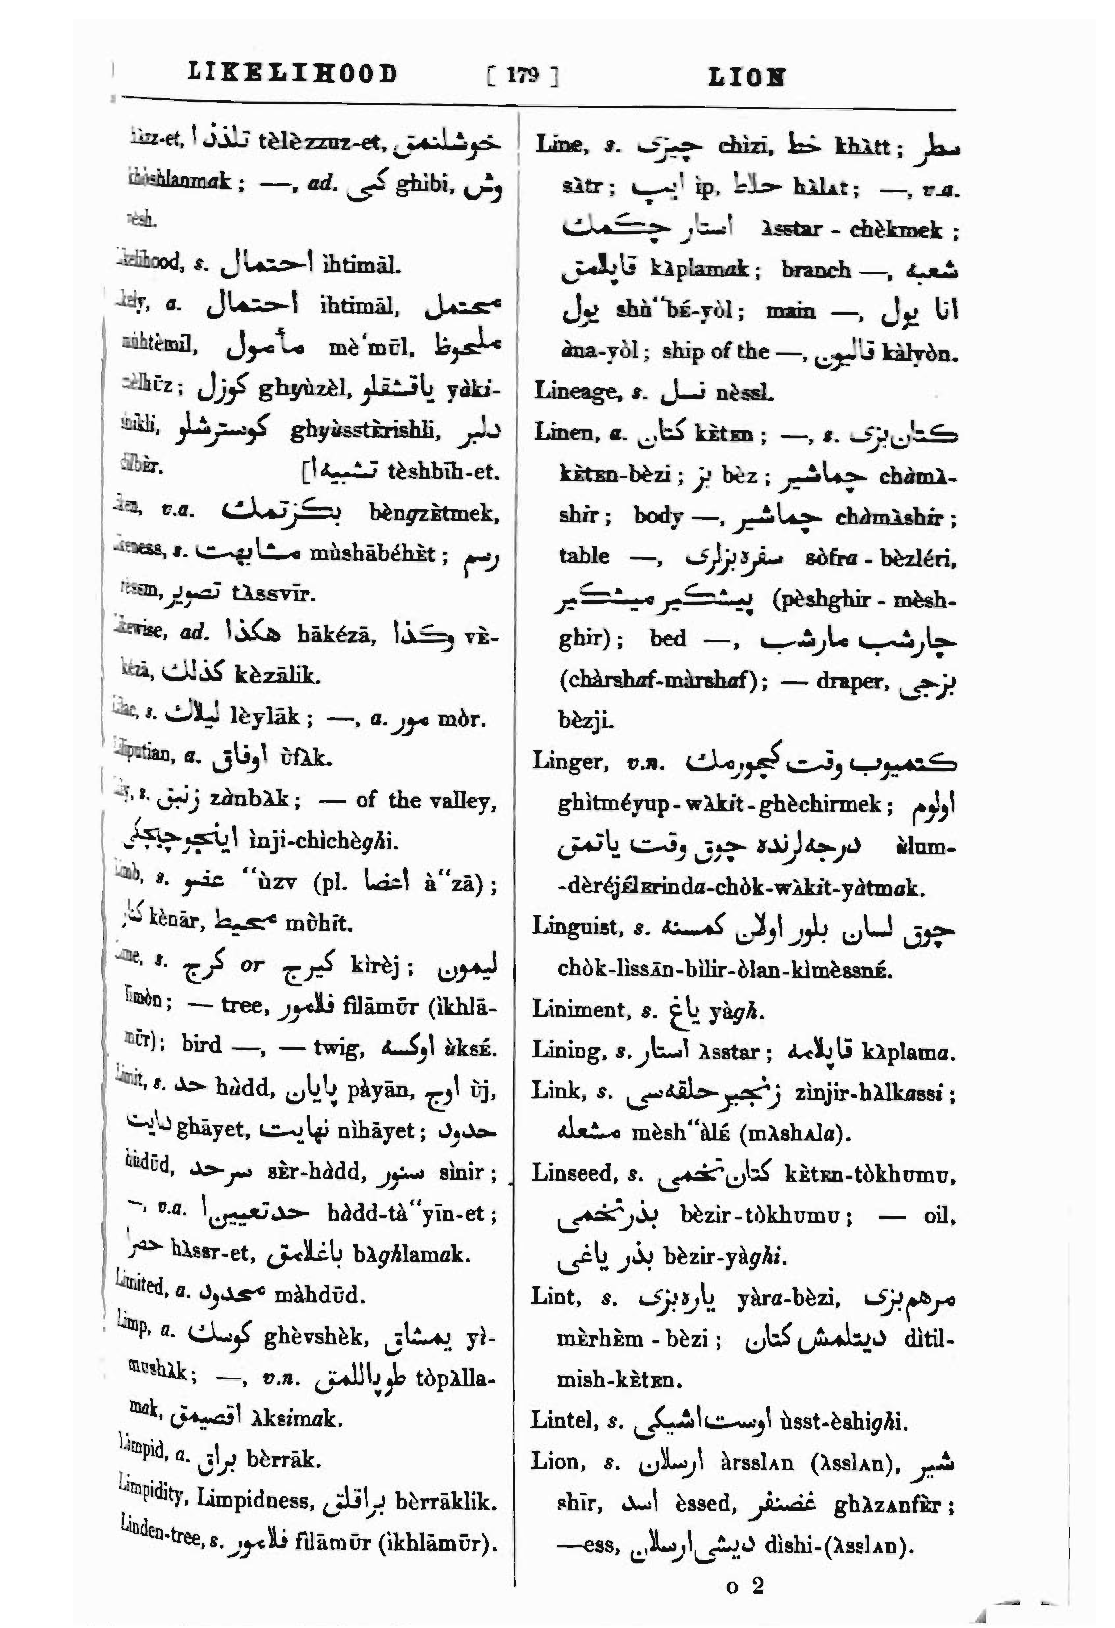 LIKELIHOOD [ 179 ] LION
تلذذ ا tèlèzzuz-et, خوشلنمق
khòshlanmak ; —, ad. كبی ghibi, وش
vèsh.
s. احتمال ìhtimāl.
a. احتمال ihtimāl, محتمل
mùhtèmil, مأمول mè‘mūl, ملحوظ
mèlhūz ; كوزل ghyùzèl, ياقشقلو yàki-
shikli, كوسترشلو ghyùsstèrishli, دلبر
dìlbèr. [تشبيه ا tèshbīh-et.
v.a. بكزتمك bèngzètmek,
s. مشابهت mùshābéhèt ; رسم
rèssm, تصوير tàssvīr.
Likewise, ad. هكذا hākézā, وكذا vè-
kézā, كذلك kèzālik.
Lilac, s. ليلاك lèylāk ; —, a. مور mòr.
Lilliputian, a. اوفاق ùfàk.
Lily, s. زنبق zànbàk ; — of the valley,
اينجوچيچكی ìnji-chìchèghi.
Limb, s. عضو “ùzv (pl. اعضا à“zā) ;
كنار kènār, محيط mùhīt.
Lime, s. كرج or كيرج kìrèj ; ليمون
līmòn ; — tree, فلامور filāmūr (ìkhlā-
mūr) ; bird —, — twig, اوكسه ùksé.
Limit, s. حد hàdd, پايان pàyān, اوج ùj,
غايت ghāyet, نهايت nìhāyet ; حدود
hùdūd, سرحد sèr-hàdd, سنور sìnir ;
—, v.a. حدتعيين ا hàdd-tà“yīn-et ;
حصر ا hàssr-et, باغلامق bàghlamak.
Limited, a. محدود màhdūd.
Limp, a. كوسك ghèvshèk, يمشاق yì-
mushàk ; —, v.n. طوپاللمق tòpàlla-
mak, اقصيمق àksimak.
Limpid, a. براق bèrrāk.
Limpidity, Limpidness, براقلق bèrrāklik.
Linden-tree, s. فلامور filāmūr (ìkhlāmūr).
Line, s. چيزی chìzi, خط khàtt ; سطر
sàtr ; ايپ ìp, حلاط hàlat ; —, v.a.
استار چكمك àsstar - chèkmek ;
قاپلامق kàplamak ; branch —, شعبه
يول shù“bé-yòl ; main —, انا يول
àna-yòl ; ship of the —, قاليون kàlyòn.
Lineage, s. نسل nèssl.
Linen, a. كتان kèten ; —, s. كتان بزی
kèten-bèzi ; بز bèz ; چماشير chàmà-
shir ; body —, چماشير chàmàshir ;
table —, سفره بزلری sòfra - bèzléri,
پيشكير ميشكير (pèshghir - mèsh-
ghir) ; bed —, چارشب مارشب
(chàrshaf-màrshaf) ; — draper, بزجی
bèzji.
Linger, v.n. كتميوب وقت كچورمك
ghìtméyup - wàkit - ghèchirmek ; اولوم
درجه لرنده چوق وقت ياتمق ùlum-
-dèréjélerinda-chòk-wàkit-yàtmak.
Linguist, s. چوق لسان بلور اولان كمسنه
chòk-lìssān-bìlir-òlan-kìmèssné.
Liniment, s. ياغ yàgh.
Lining, s. استار àsstar ; قاپلامه kàplama.
Link, s. زنجيرحلقه سی zìnjir-hàlkassi ;
مشعله mèsh“àlé (màshala).
Linseed, s. كتان تخمی kèten-tòkhumu,
بذرتخمی bèzir-tòkhumu ; — oil,
بذر ياغی bèzir-yàghi.
Lint, s. ياره بزی yàra-bèzi, مرهم بزی
mèrhèm - bèzi ; ديتلمش كتان dìtil-
mish-kèten.
Lintel, s. اوست اشيكی ùsst-èshighi.
Lion, s. ارسلان àrsslan (àsslan), شير
shīr, اسد èssed, غضنفر ghàzanfèr ;
—ess, ديشی ارسلان dìshi-(àsslan).
o 2